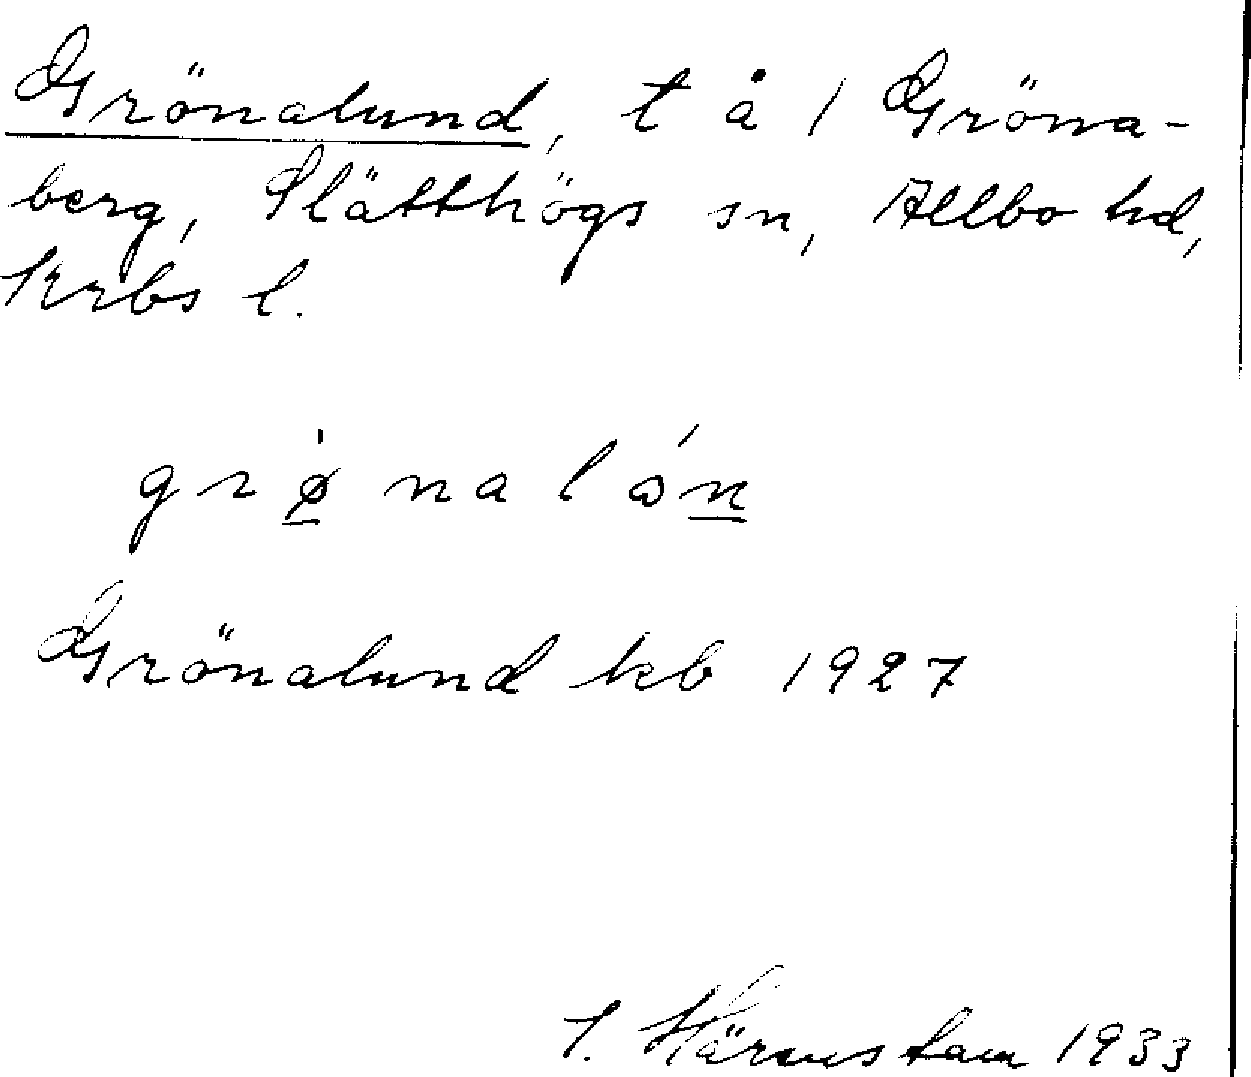 Grönalund, t å 1 Gröna-
berg, Slätthögs sn, Allbo hd,
Krbs l.
grø̱̀nalón̲
Grönalund kb 1927
1933